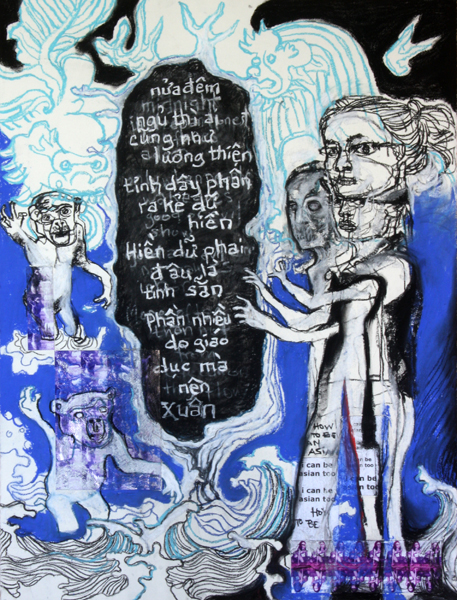 nửa đêm
ngủ thì ai
cũng như
lương thiện
tỉnh dậy phân
ra kẻ dữ
hiền
Hiền dữ phải
đâu là
tính sẵn
Phần nhiều
do giáo
dục mà
nên
Xuân
HOW
TO BE
AN
ASI
i can be
asian too
i can be
asian too
TO BE